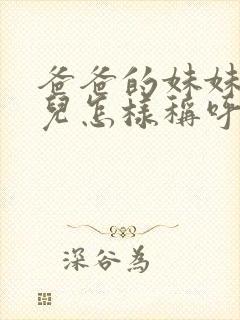 爸爸的妹妹
兒怎樣稱呼
深谷為